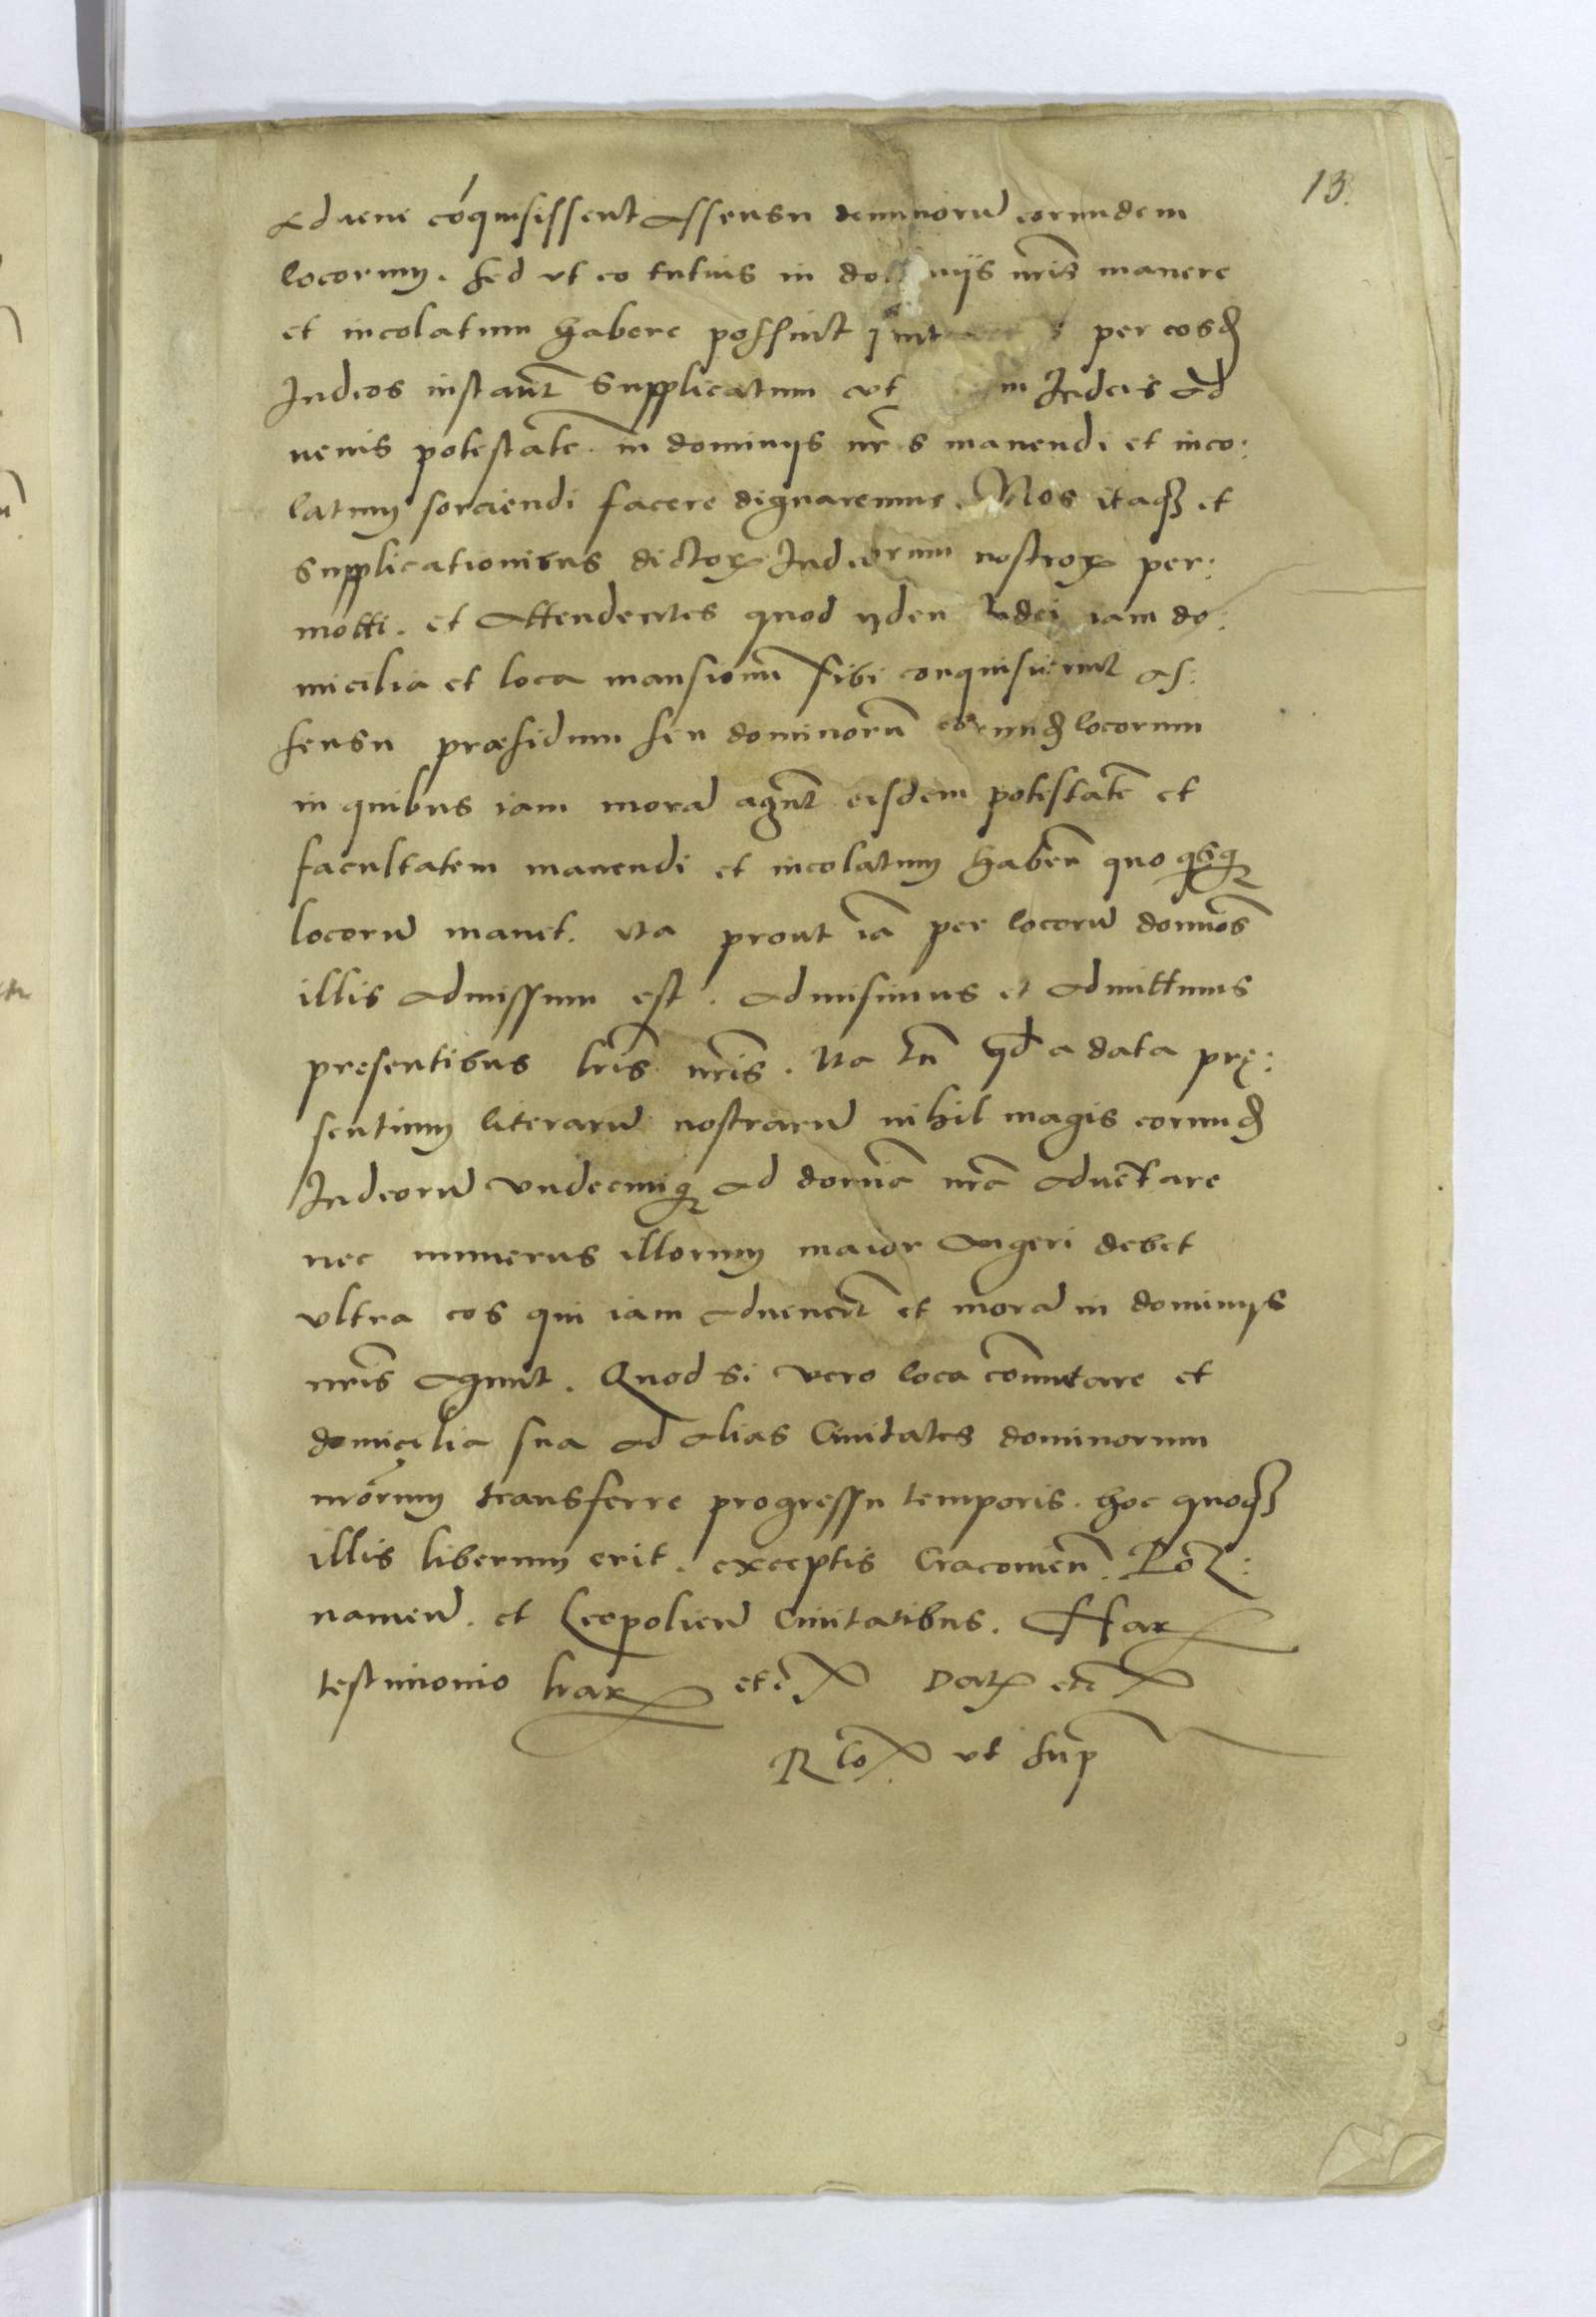 13.
advene cōquisissent assensu dominorū eorundem
locorum. sed ut eo tutius in do niis nr̃is manere
et incolatum habere possint per eosd̃
Iudeos instant̃ supplicatum ut m Iudeis ad
venis potestatẽ in dominiis nr̃ s manendi et inco:
latum sorciendi facere dignaremur. Nos itaq₃ et
supplicationibus dictoꝝ Iudeorum nostroꝝ per:
motti. et attendentes quod ijdem Iudei iam do:
micilia et loca mansionũ sibi conquisierint as:
sensu præsidum seu dominorũ eorund̃ locorum
in quibus iam morã agũnt eisdem potestatẽ et
facultatem manendi et incolatum habenđ quo
locorũ manet. Ita prout iã per locorũ domĩos
illis admissum est. admisimus et admittimus
presentibus lr̃is nr̃is. Ita tñ qđ a data prę:
sentium literarũ nostrarũ nihil magis eorund̃
Iudeorũ undecunq₃ ad domĩa nr̃a advẽtare
nec numerus illorum maior augeri debet
ultra eos qui iam advenerũt et morã in dominiis
nr̃is agunt. Quod si vero loca com̃utare et
domicilia sua ad alias Civitates dominorum
nr̃orum transferre progressu temporis. hoc quoq₃
illis liberum erit. exceptis Cracovieñ. Poz:
namieñ. et Leopolieñ Civitatibus. Harꝝ
testimonio lrarꝝ etc̃ Datꝝ etc̃
Rło ut sup